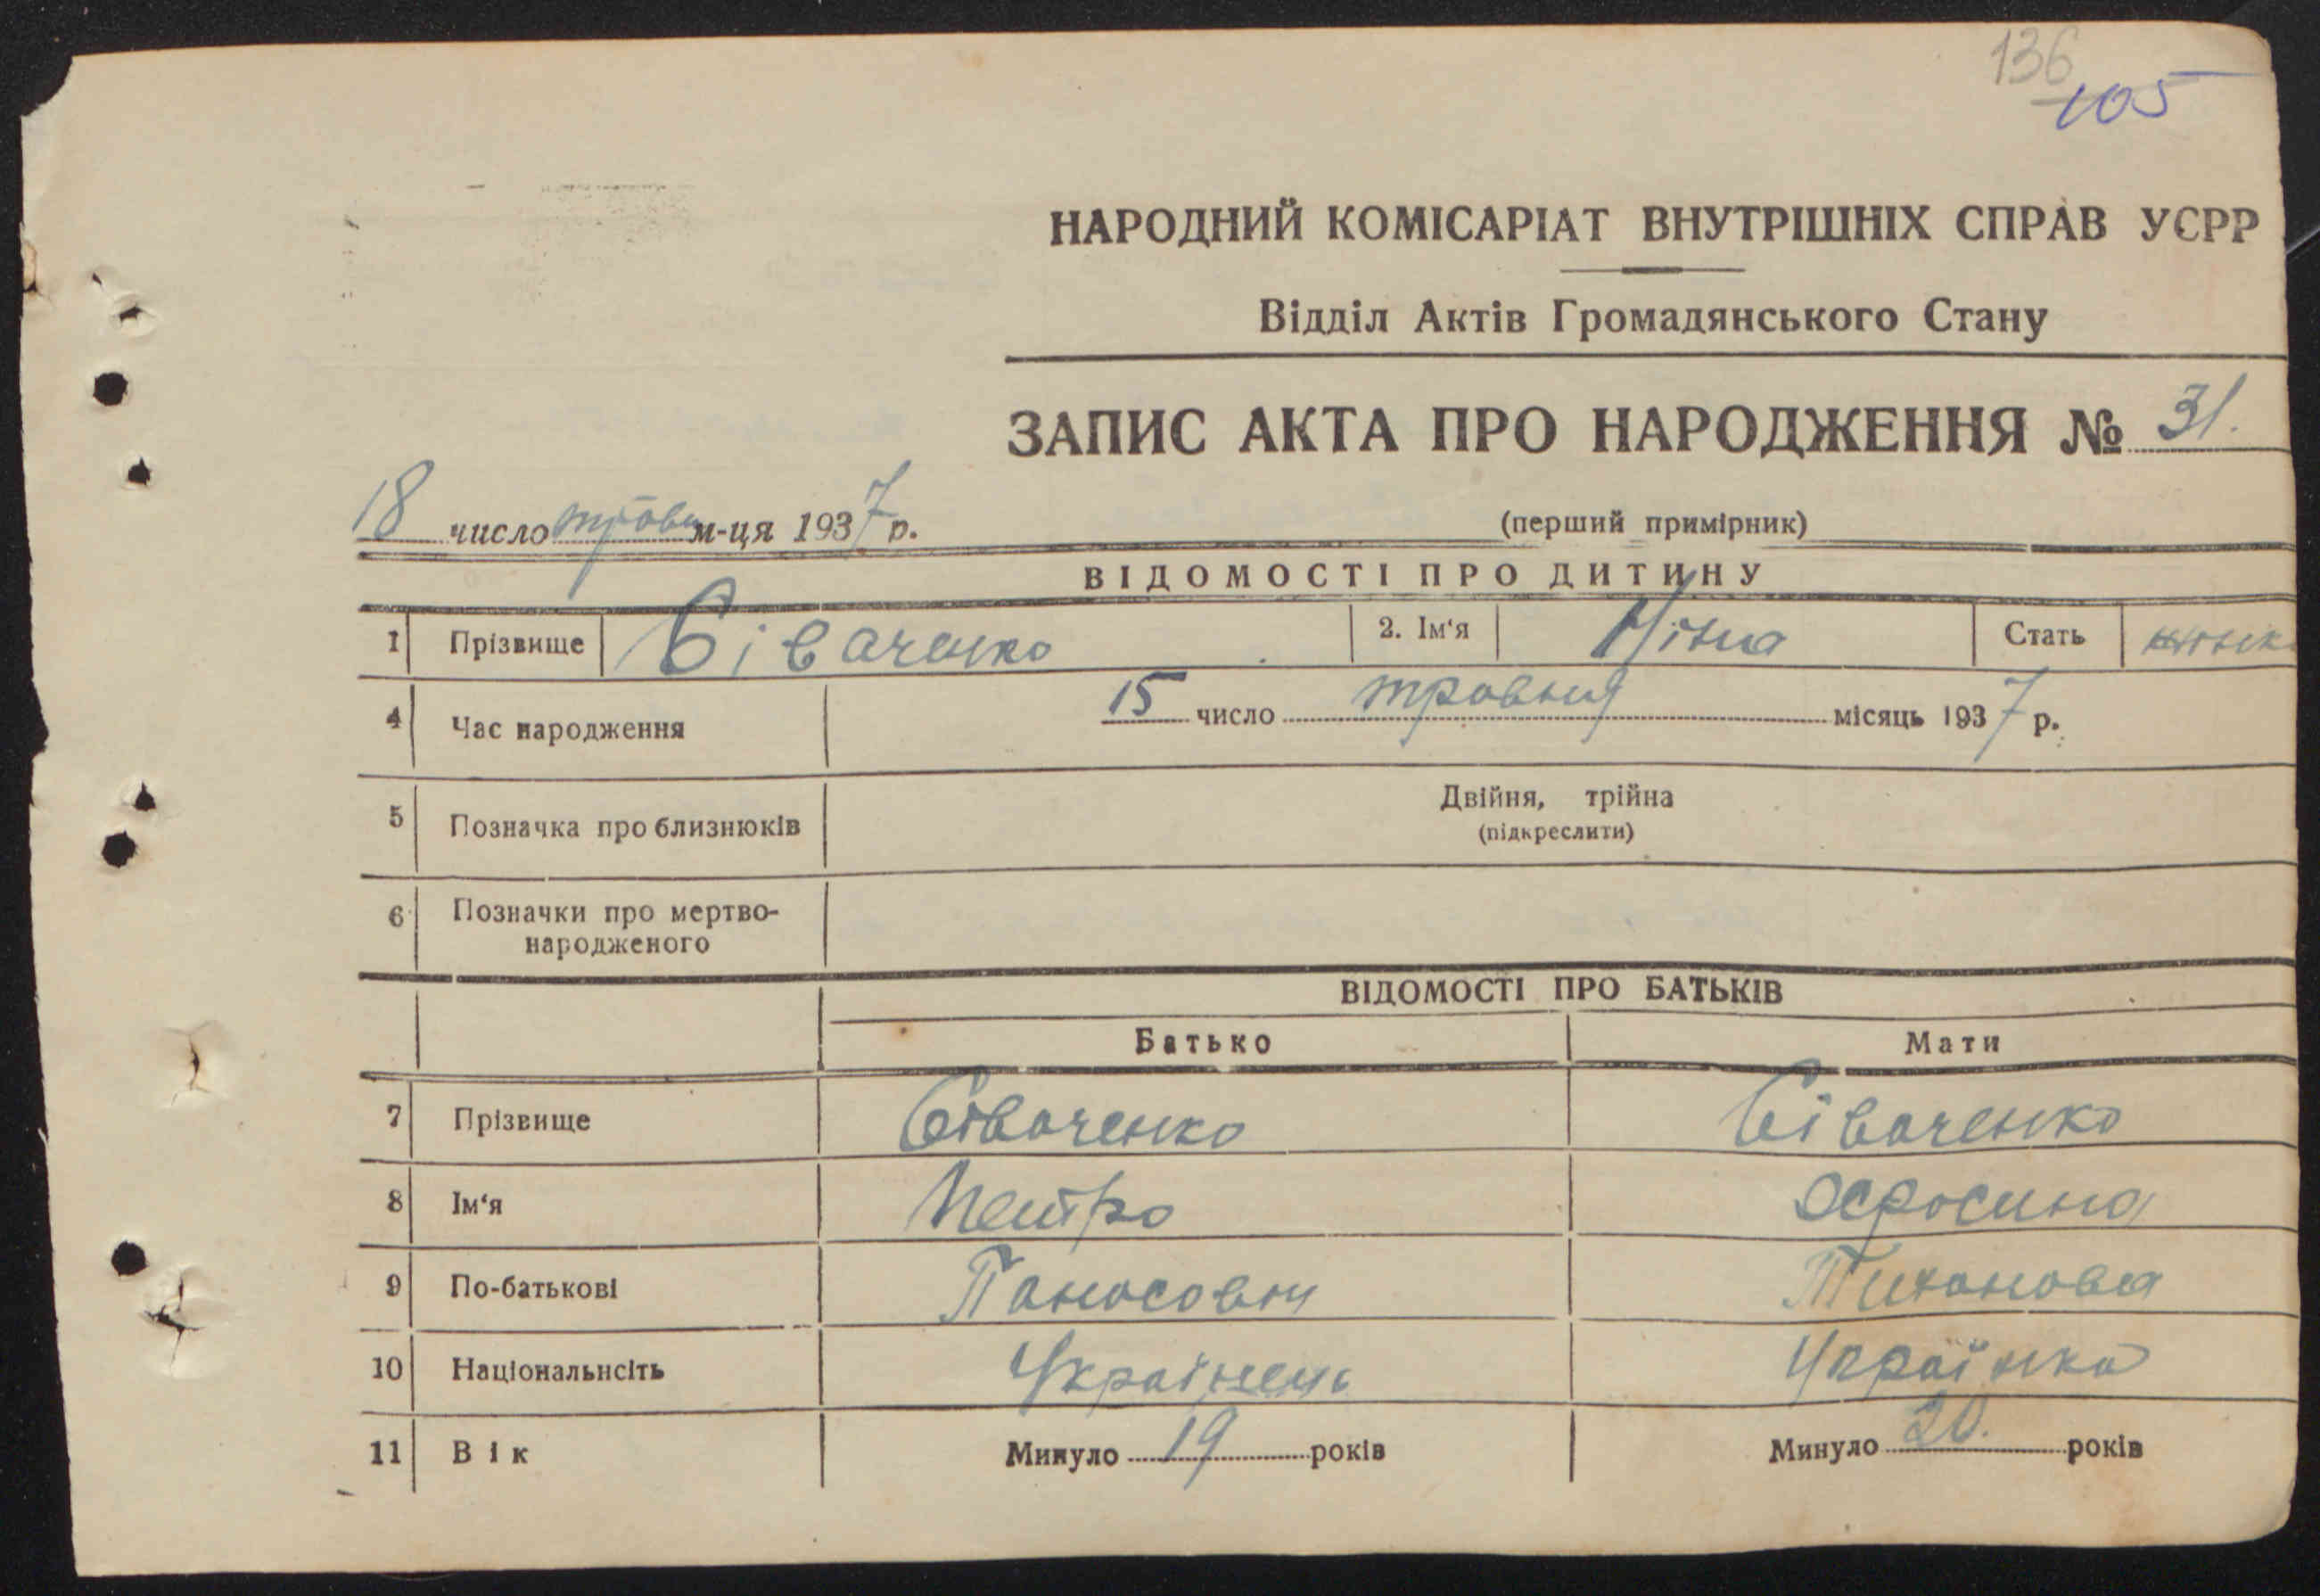 136
105
НАРОДНИЙ КОМІСАРІАТ ВНУТРІШНІХ СПРАВ УСРР
Відділ Актів Громадянського Стану
ЗАПИС АКТА ПРО НАРОДЖЕННЯ № 31.
18 число травн м-ця 1937 р.
(перший примірник)
ВІДОМОСТІ ПРО ДИТИНУ
1 Прізвище Сіваченко 2. Ім‘я Ніна Стать
4 Час народження 15 число травня місяць 1937 р.
5 Позначка про близнюків Двійня, трійна
(підкреслити)
6 Позначки про мертво-
народженого
ВІДОМОСТІ ПРО БАТЬКІВ
Батько Мати
7 Прізвище Сіваченко Сіваченко
8 Ім‘я Петро
9 По-батькові Панасович Тиханова
10 Національнсіть Українець Українка
11 Вік Минуло 19 років Минуло 20. років